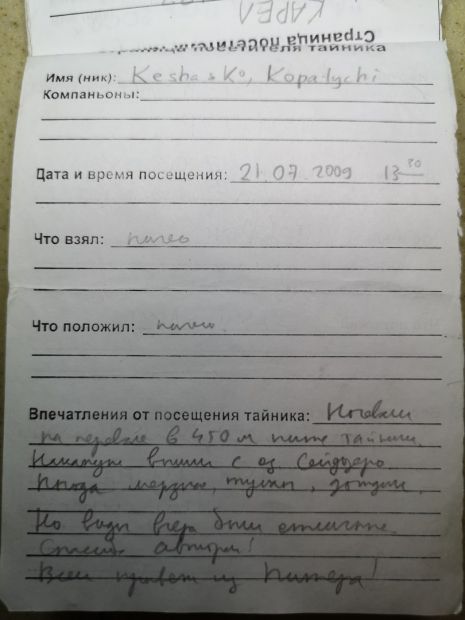 КАРЕЛ
Страница посетителя тайника
Имя (ник): Kesha & Ko, Kopalychi
Компаньоны:
Дата и время посещения: 21.07.2009 13 30
Что взял: ничего
Что положил: ничего
Впечатления от посещения тайника: Ночевали
на перевале в 450 м ниже тайника.
Накануне вышли с оз. Сейдозеро.
Погода мерзкая, туман, дождик.
Но виды вчера были отличные.
Спасибо авторам!
Всем привет из Питера!